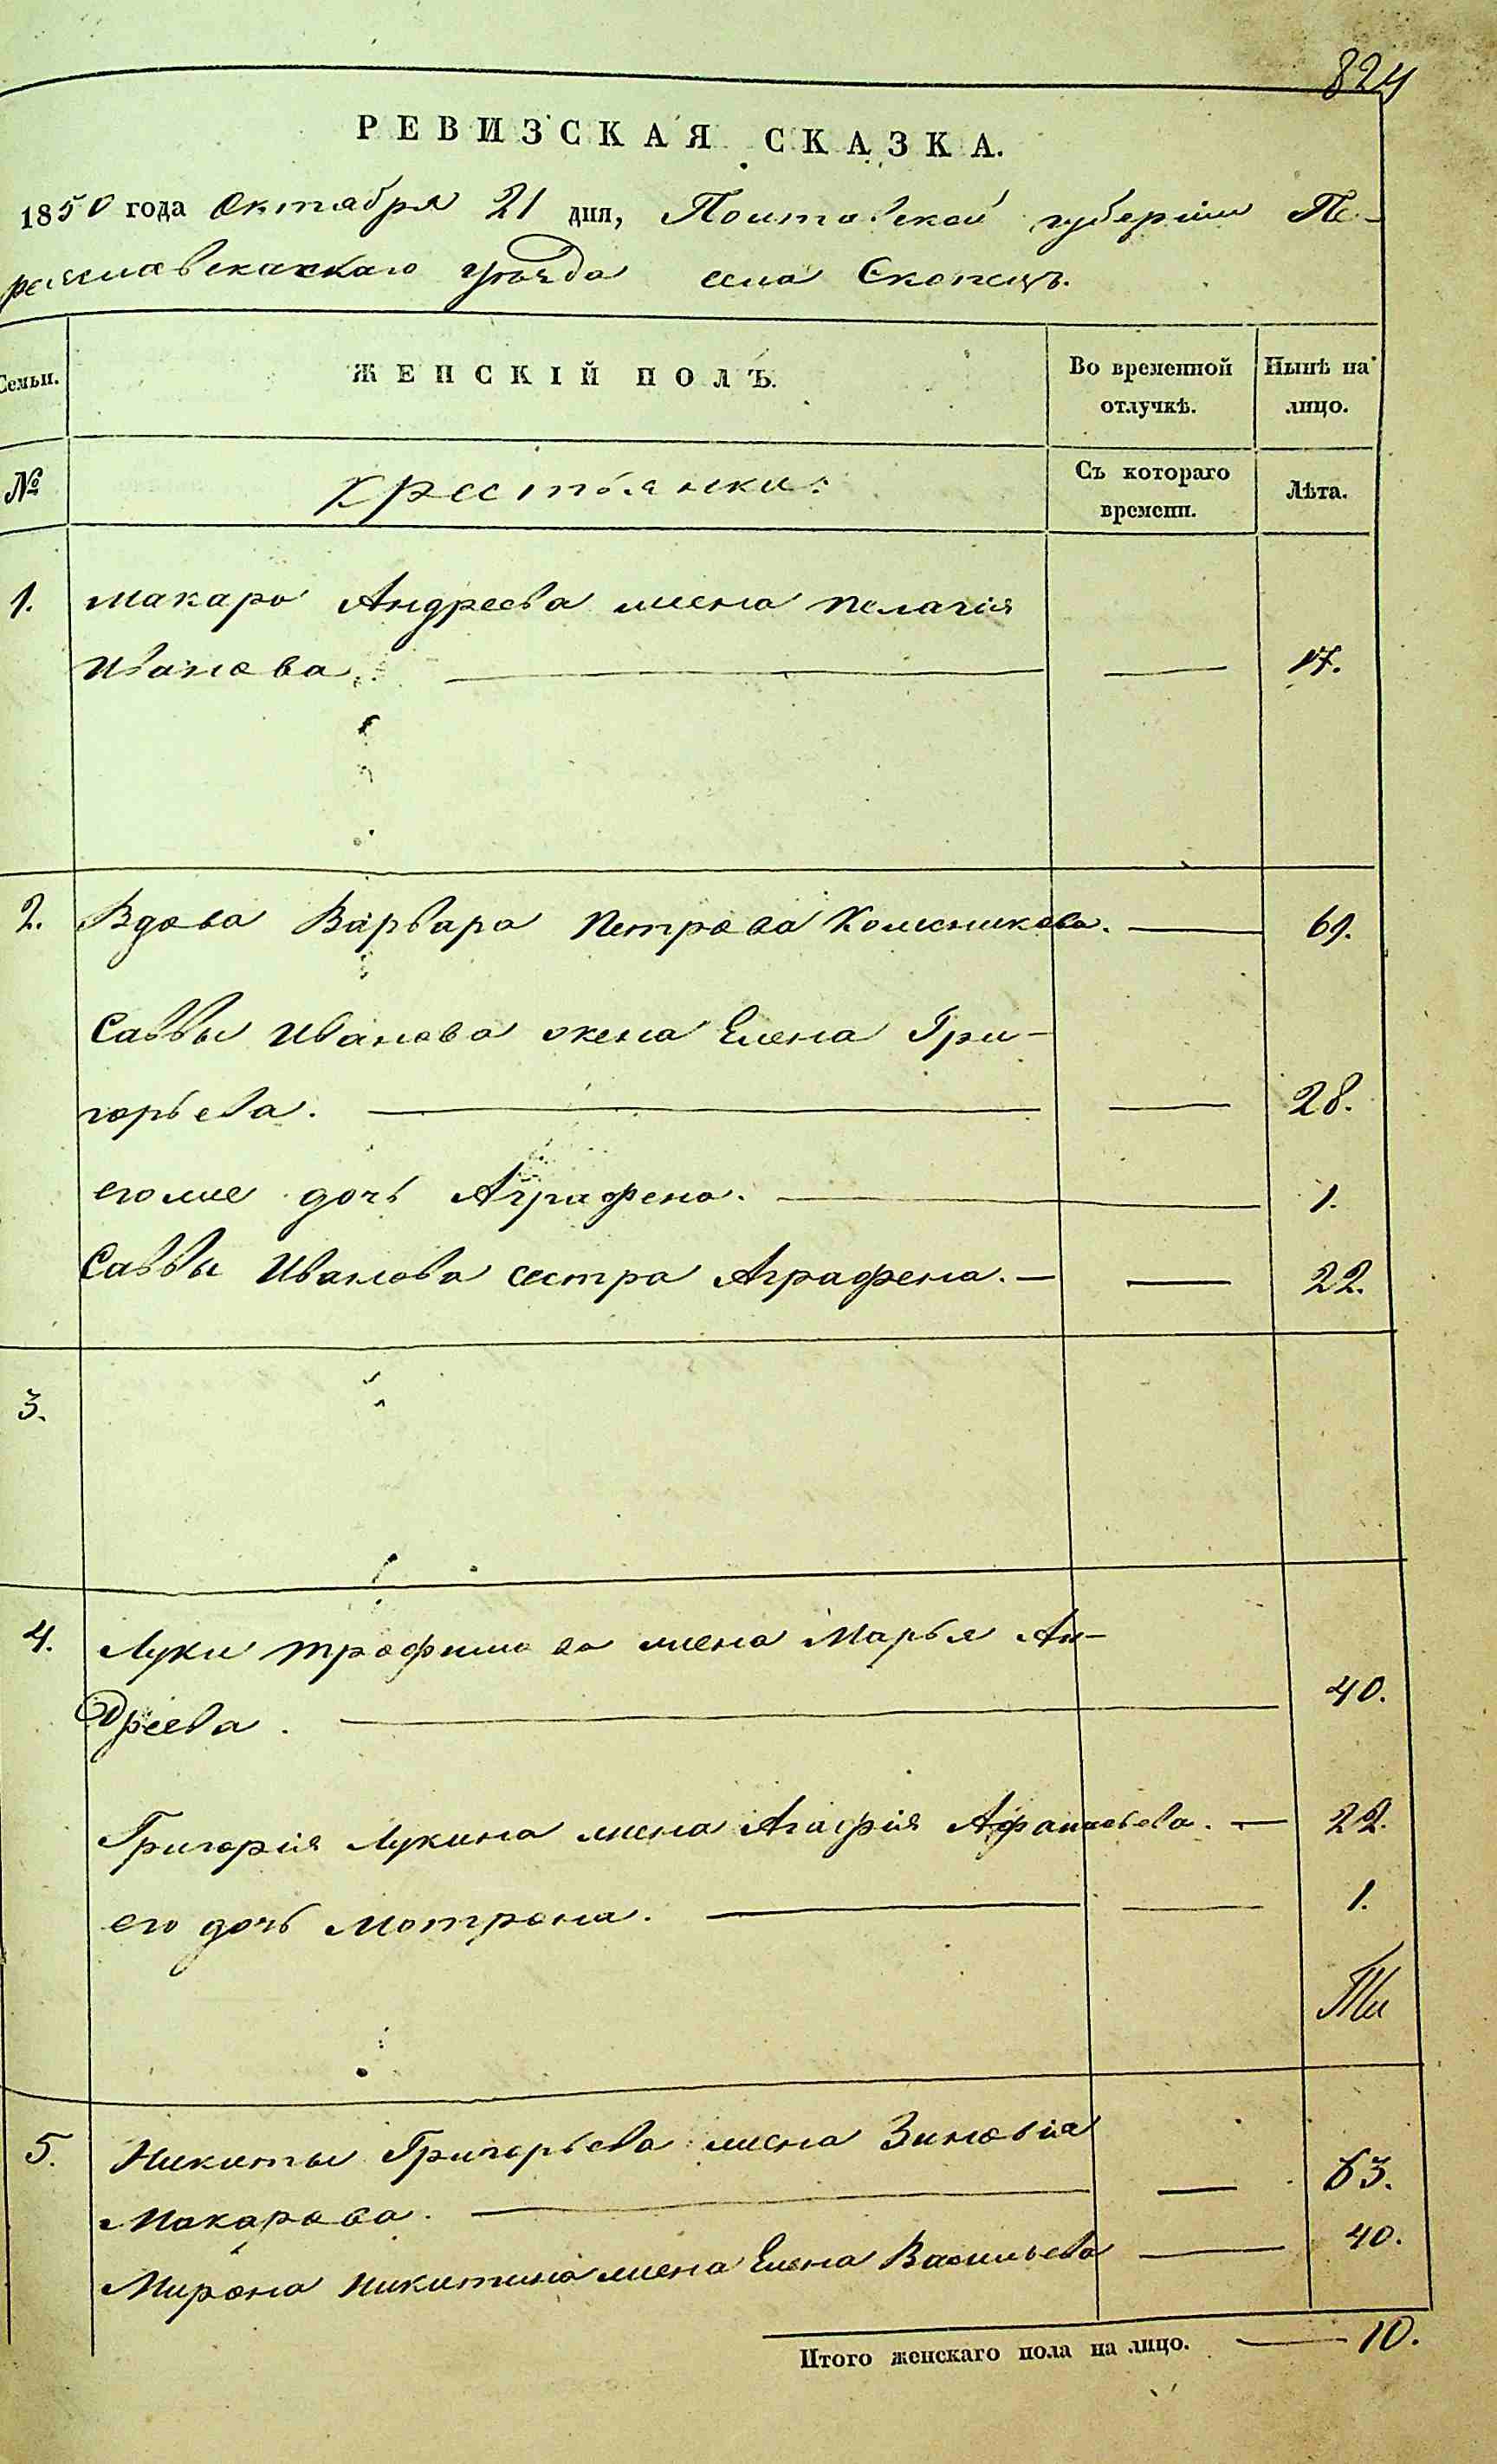 824
РЕВИЗСКАЯ СКАЗКА.
1850 года Октября 21 дня, Полтавской губернiи Пе-
реяславскаго уѣзда села Скопецъ.
Семьи.
ЖЕНСКІЙ ПОЛЪ.
Во временной отлучкѣ.
Нынѣ на лицо.
№
Крестьянки:
Съ котораго времени.
Лѣта.
1. Макара Андреева жена Пелагія
Иванова. — — 17.
2. Вдова Варвара Петрова Колесникова. — 69.
Саввы Иванова жена Елена Гри-
горьева. — — 28.
его же дочь Аграфена. — 1.
Саввы Иванова сестра Аграфена. — — 22.
3.
4. Луки Трофимова жена Марья Ан-
дреева. — 40.
Григорія Лукина жена Агафія Афанасьева. — 22.
его дочь Мотрона. — — 1.
5. Никиты Григорьева жена Зиновія
Макарова. — — 63.
Мирона Никитина жена Елена Васильева — 40.
Итого женскаго пола на лицо. — 10.